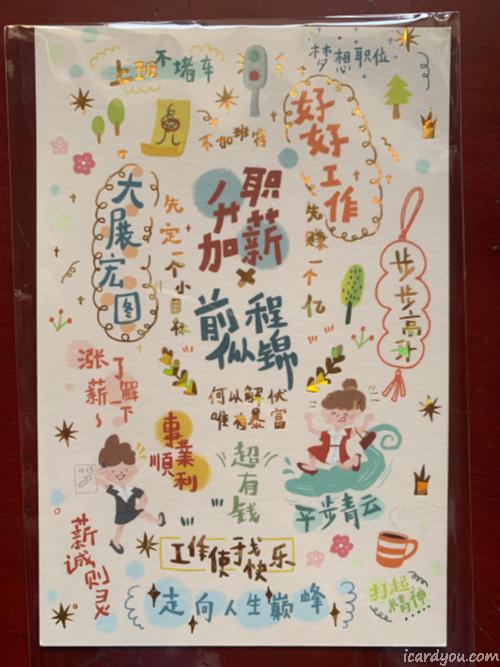 上班不堵车
梦想职位
不加班符
好好工作
大展宏图
先定一个小目标
升职加薪
先赚一个亿
步步高升
前程似锦
涨薪了解一下~
何以解忧
唯有暴富
事業順利
超有钱
平步青云
薪诚则灵
工作使我快乐
打起精神
走向人生巅峰
icardyou.com